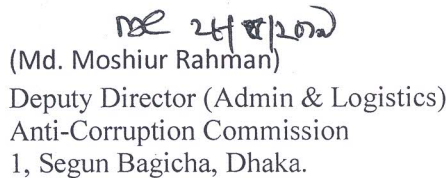 (Md. Moshiur Rahman)
Deputy Director (Admin & Logistics)
Anti-Corruption Commission
1, Segun Bagicha, Dhaka.